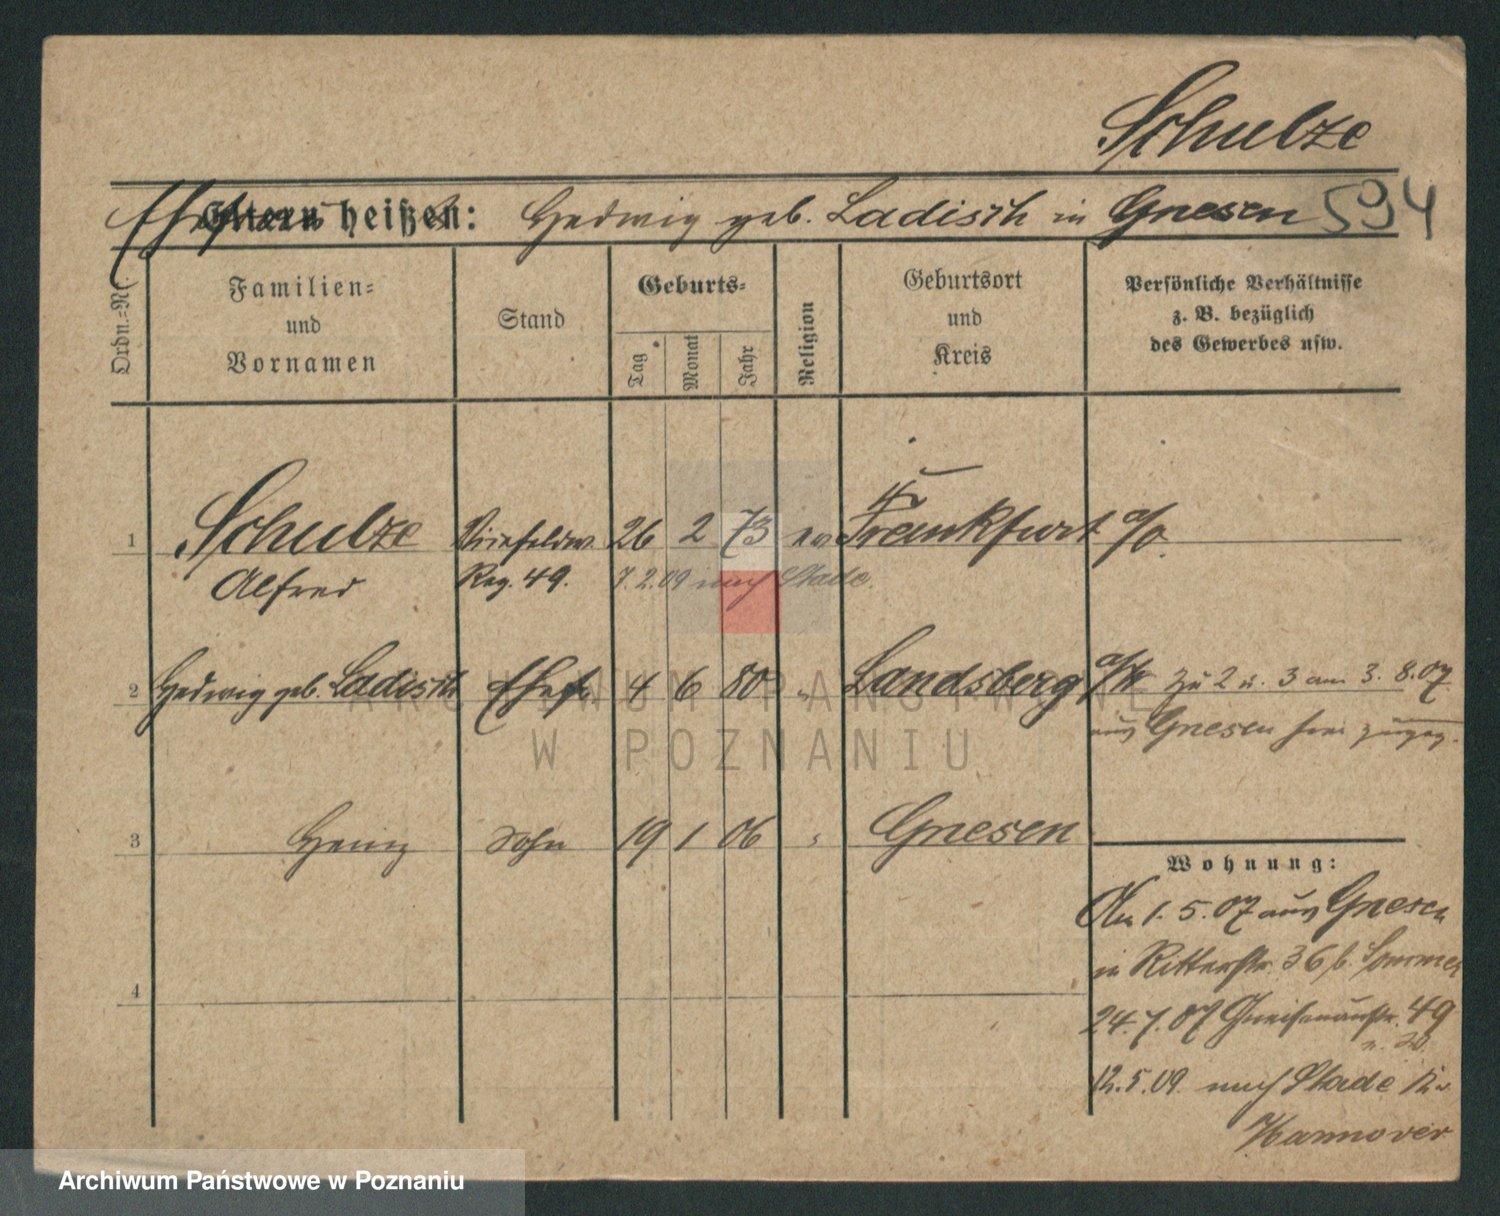 Schulze
Ehefrau Eltern heißen: Hedwig geb. Ladisch in Gnesen 594
Ordn.-Nr.
Familien-
und
Vornamen
Stand
Geburts-
Tag
Monat
Jahr
Religion
Geburtsort
und
Kreis
Persönliche Verhältnisse
z. B. bezüglich
des Gewerbes usw.
1 Schulze Vizefeldw. 26 2 73 ev Frankfurt a/O.
Alfred Reg. 49. 7.2.09 nach Stade.
2 Hedwig geb. Ladisch Ehefr 4 6 80 " Landsberg a/W zu 2 u. 3 am 3. 8. 07
aus Gnesen hier zugez.
3 Heinz Sohn 19 1 06 " Gnesen
Wohnung:
Am 1. 5. 07 aus Gnesen
in Ritterstr. 36 b. Sommer
24.7.07 Gneisenaustr. 49
4
12.5.09. nach Stade
Hannover
ARCHIWUM PAŃSTWOWE
W POZNANIU
Archiwum Państwowe w Poznaniu